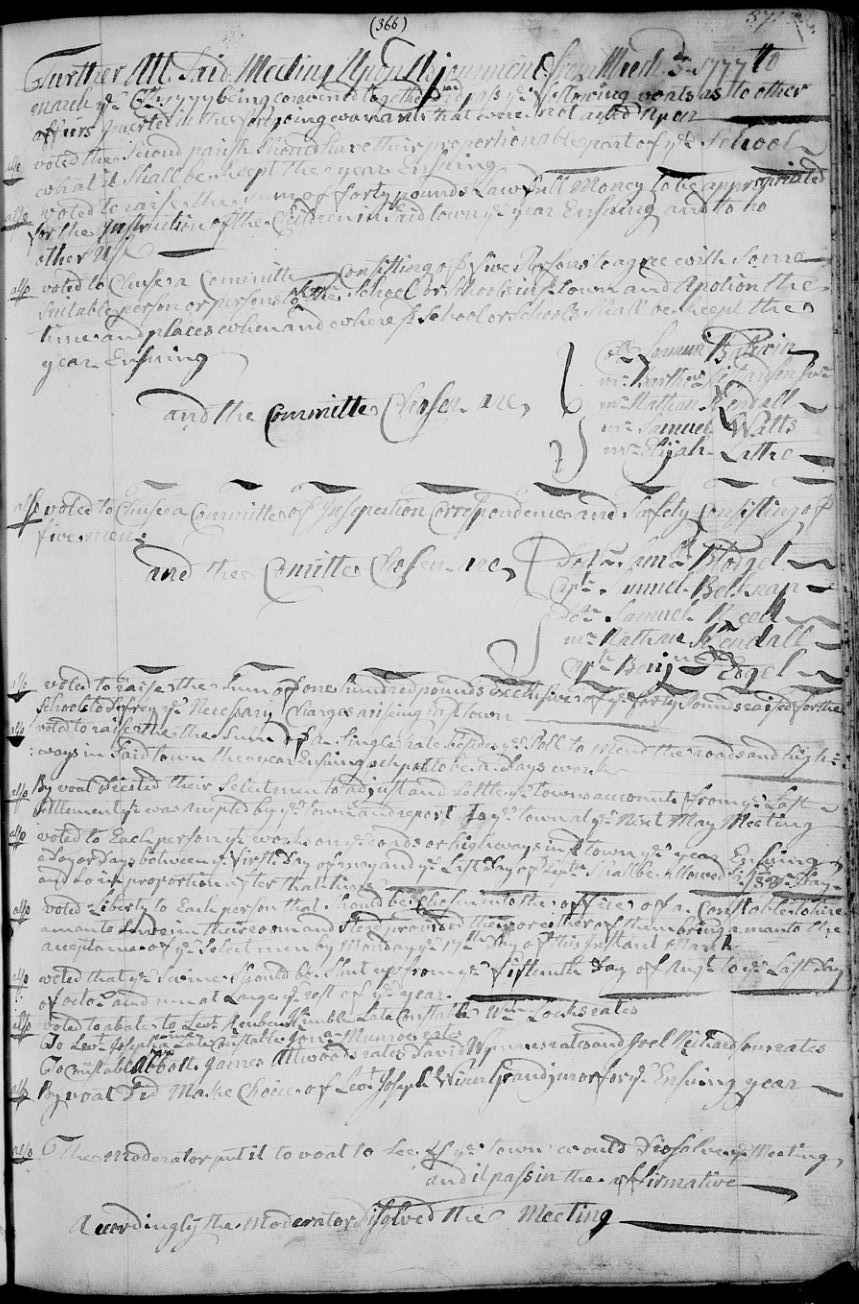 (366)
371
Further Att Said Meeting Upon Adjournment from March ye 3d 1777 to
march ye 6th 1777 being convened together Did pass ye following voats as to other
affairs Inserted in the foregoing warrants that were not acted upon
also voted the Second parish Should have their proportionable part of ye School
what it Shall be kept the year Ensuing
also voted to raise the sum of forty pounds Lawfull Money to be appropriated
for the Instruction of the Children in Said town ye year Ensuing and to no
other Use
also voted to Chuse a Committe Consisting of five Persons to agree with Some
Suitable person or persons to keep the School or Schools in sd town and Apotion the
time and places when and where sd School or Schools Shall be kept the
year Ensuing
Baldwin
mr Barthw Richardson Junr
and the Committe Chosen are,
mr Nathan Kendall
mr Samuel Watts
mr Elijah Lathe
also voted to Chuse a Committe of Inspection Correspondence and Safety Consisting of
five men.
and the Comitte Chosen are,
Saml Blodget
Capt Samuel Belknap
Samuel Reed
mr Nathan Kendall
Capt Benjn Edgel
also voted to raise the Sum of one hundred pounds Exclusive of ye forty Pounds raised for the
School to Defrey ye Necessary Charges arising in sd town
also voted to raise the the Sum of a Single rate besides ye Poll to mend the roads and high-
ways in Said town the year Ensuing to be a Days work
also By voat Directed their Selectmen to adjust and Settle ye towns accounts from ye Last
Settlement yt was Acepted by ye town and report to ye town at ye Next May Meeting
also voted to Each person yt works on ye roads or highways in sd town ye year Ensuing
a Day or Days between ye first Day of may and ye Last Day of Septr Shall be allowed Day
and So in proportion after that time
also voted Liberty to Each person that Should be Chosen into the office of a Constable to hire
a man to Serve in their room and Stead provided they or either of them bring a man to the
aceptance of ye Select men by Monday ye 17th Day of this Instant March
also voted that ye Swine Should be Shut up from ye fifteenth Day of Augt to ye Last Day
of octor and run at Large ye rest of ye year.
also voted to abate to Levt Reuben Kimball Late Constable Wm Locks rates
To Levt Joseph Late Constable Jonan Munroe rates
To Constable Abbott James Attwoods rates David Wymans rates and Joel Richardsons rates
also By voat Did Make Choice of Levt Joseph Winn Grandjuror for ye Ensuing year
also The moderator put it to voat to See If ye town would Dissolve ye Meeting,
and it pass in the affirmative
Acordingly the Moderator Disolved the Meeting